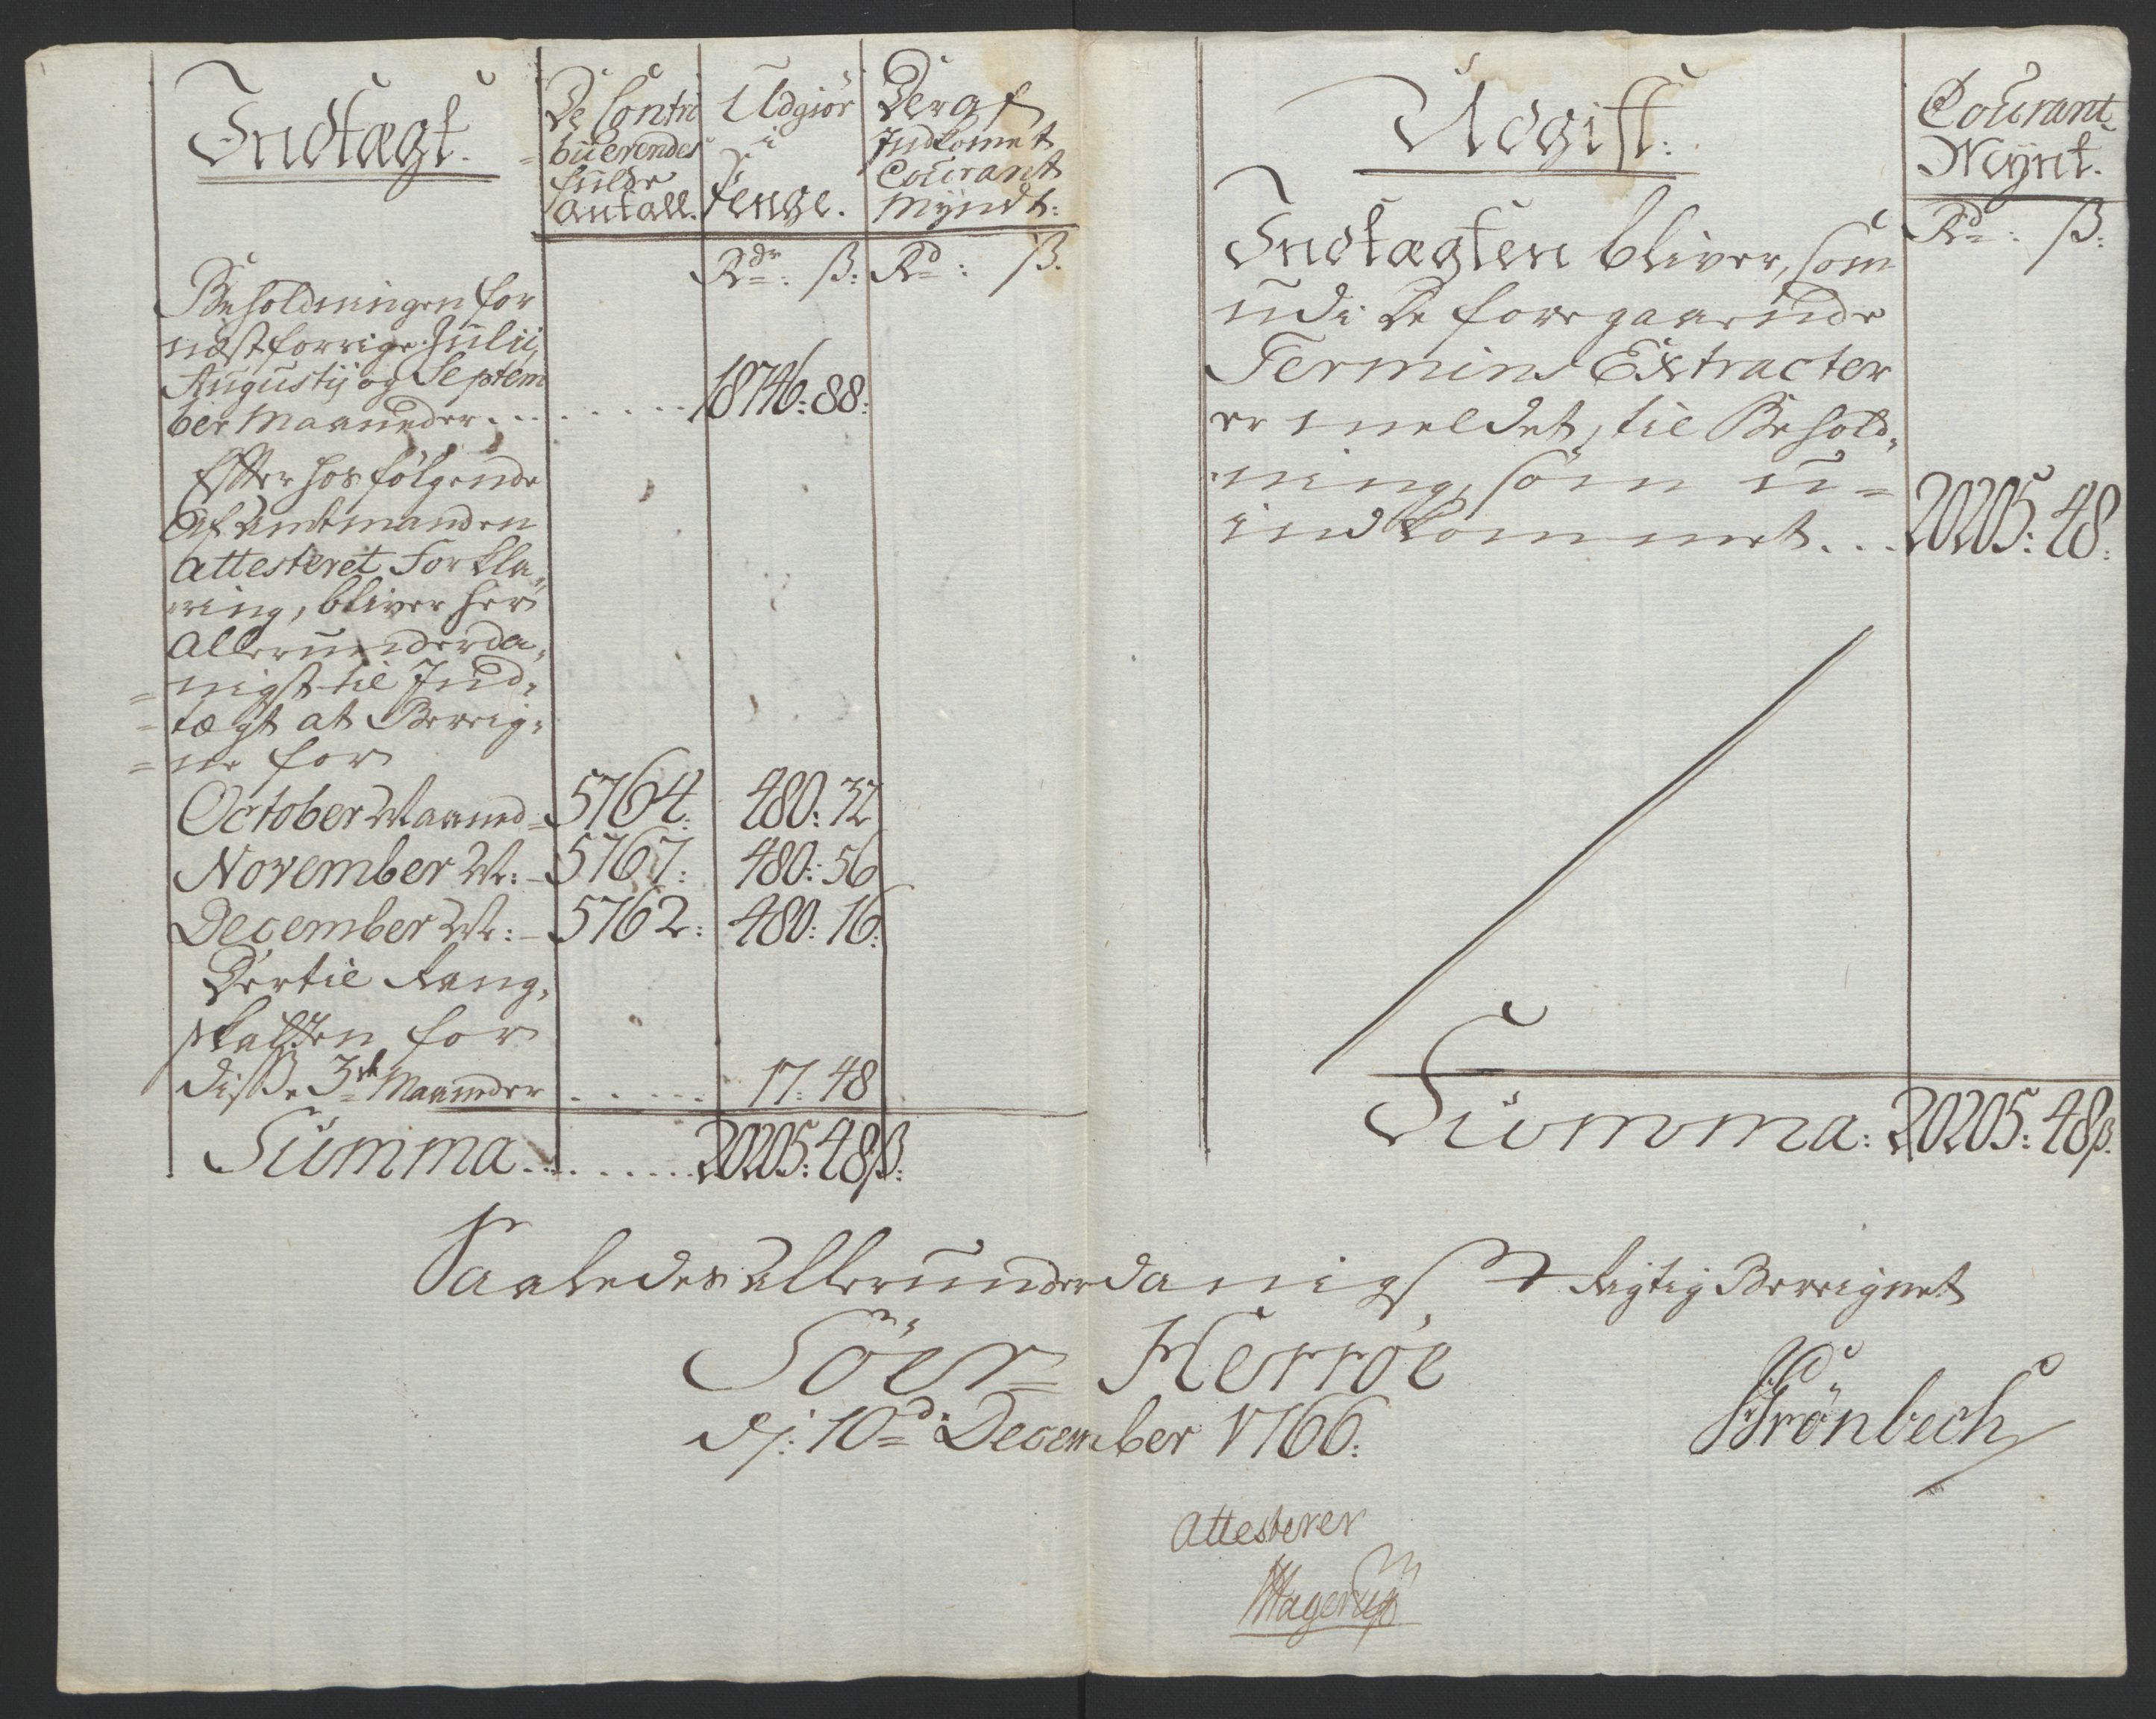 Indtægt.
De Contri
büerendes
fulde
antall.
Udgiør
i
Penge.
Deraf
Indkomet
Courant
Myndt:
Rdr: ß: Rd: ß.
Beholdningen for
næstforrige Julii,
Augustij og Septem
ber Maaneder. . . . . . . . . . 18746: 88:
Efter hosfølgende
Af Amtmanden
attesteret Forkla,
ring, bliver her
allerunderda,
= nigst til Ind,
= tægt at Bereig,
= ne for
October Maaned = 5764: 480: 32
November M: - 5767: 480: 56
December M: - 5762: 480: 16:
Dertil Rang,
skatten for
disse 3de Maaneder . . . . . . 17: 48
Summa. . . . . . . . . 20205: 48ß:
Udgift:
Courant
Mynt.
Rd: ß:
Indtægten bliver, som
udi De foregaaende
Termins Extracter
er meldet, til Behold,
ning, som u=
indkommet. . . 20205: 48:
Summa: 20205: 48ß.
Saaledes allerunderdanigst Rigtig Bereignet
Söer Herröe
dj: 10d December 1766:
Grönbech
Attesterer
Hagerup